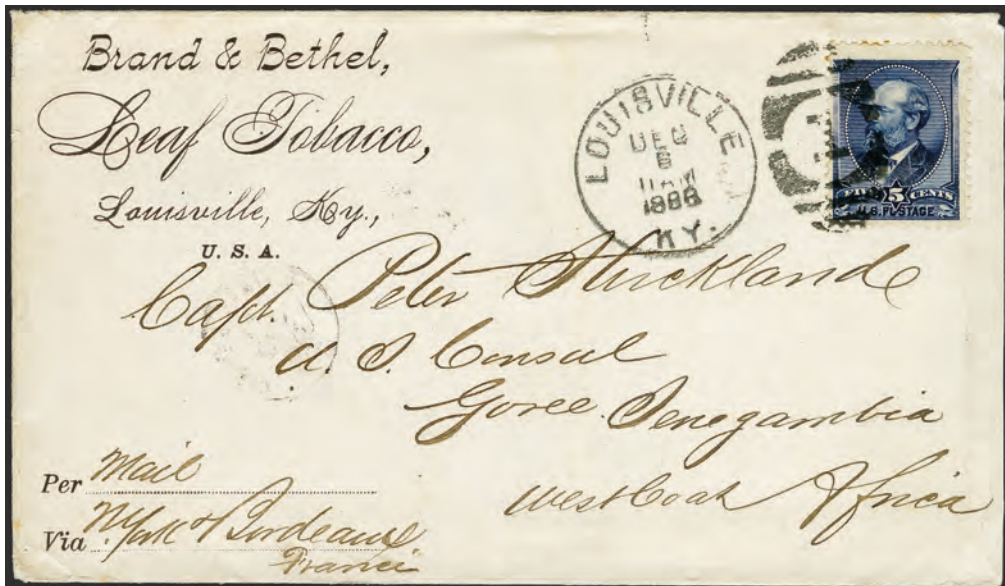 Brand & Bethel,
Leaf Tobacco,
Louisville, Ky.,
U. S. A.
LOUISVILLE
DEC
11 AM
1886
KY.
FIVE 5 CENTS
U.S. POSTAGE
Capt. Peter Strickland
U. S. Consul
Goree Senegambia
West Coast Africa
Per Mail
Via N. York & Bordeaux
France